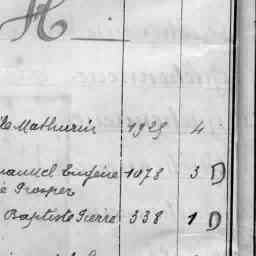 H
Mathurin 1929 4
Emmanuel Eugène 1078 3 D
Prosper
Baptiste Pierre 338 1 D